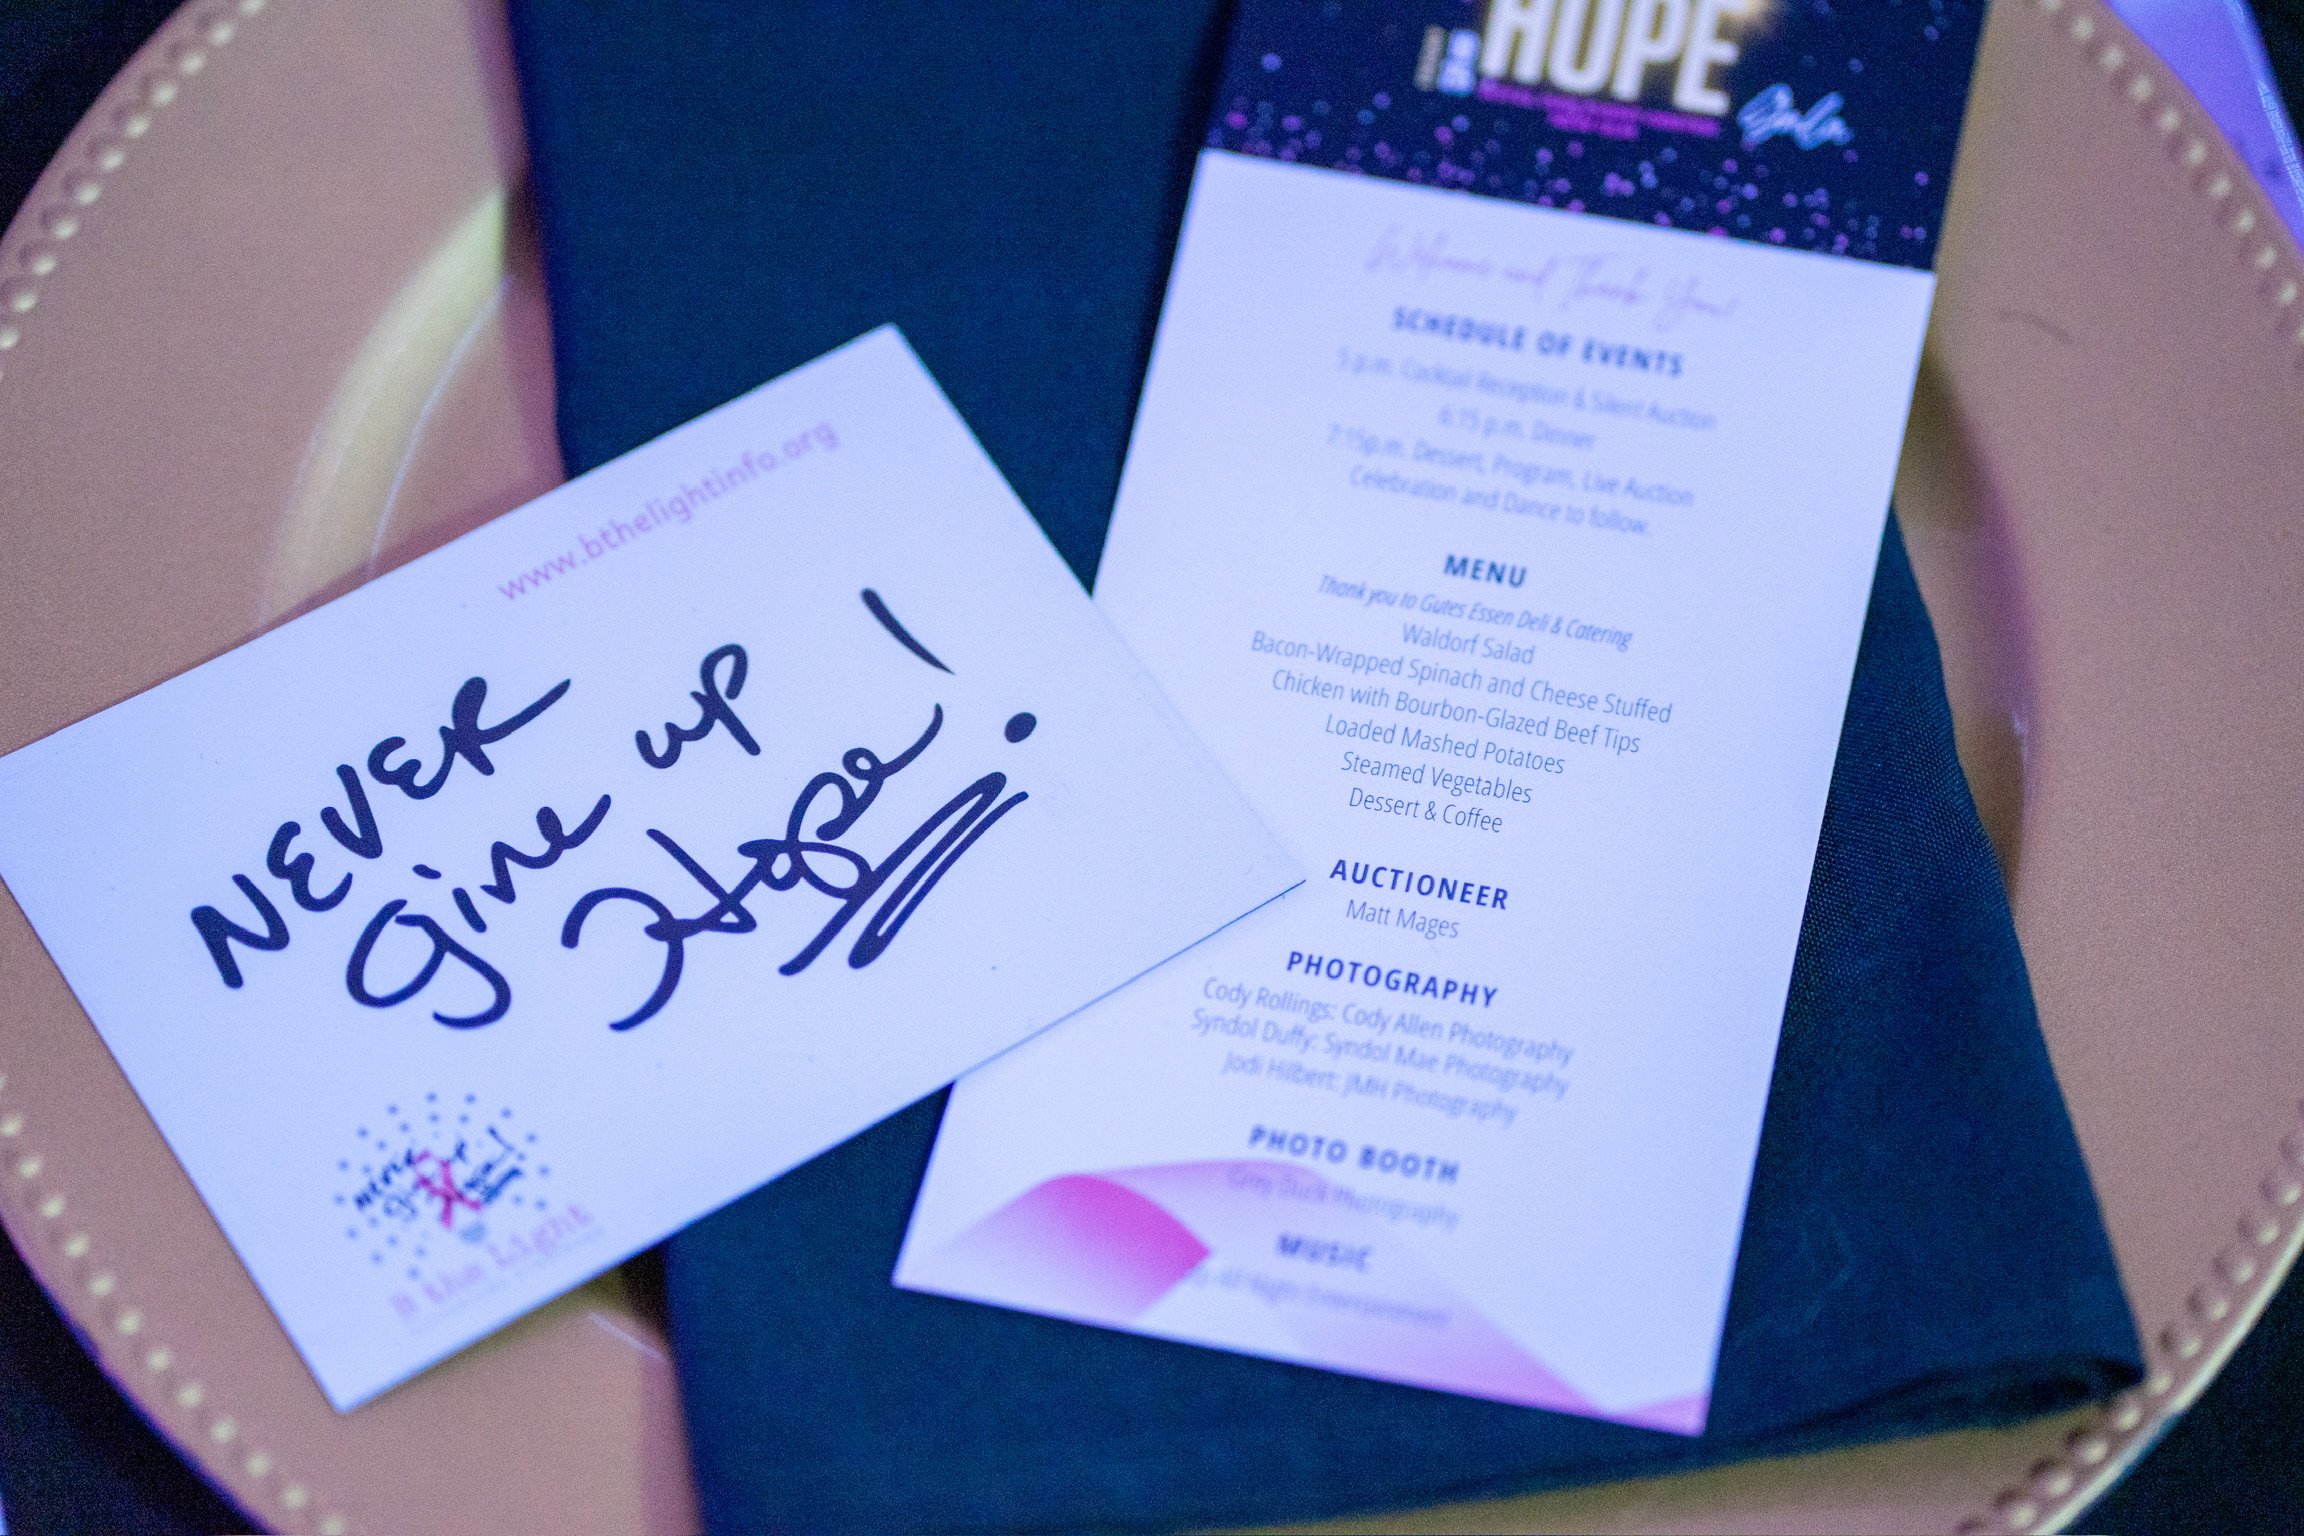 www.bthelightinfo.org
NEVER
give up
Hope!
B the Light
HOPE
Gala
Welcome and Thank You!
SCHEDULE OF EVENTS
5 p.m. Cocktail Reception & Silent Auction
6:15 p.m. Dinner
7:15p.m. Dessert, Program, Live Auction
Celebration and Dance to follow.
MENU
Thank you to Gutes Essen Deli & Catering
Waldorf Salad
Bacon-Wrapped Spinach and Cheese Stuffed
Chicken with Bourbon-Glazed Beef Tips
Loaded Mashed Potatoes
Steamed Vegetables
Dessert & Coffee
AUCTIONEER
Matt Mages
PHOTOGRAPHY
Cody Rollings: Cody Allen Photography
Syndol Duffy: Syndol Mae Photography
Jodi Hilbert: JMH Photography
PHOTO BOOTH
Grey Duck Photography
MUSIC
All Night Entertainment